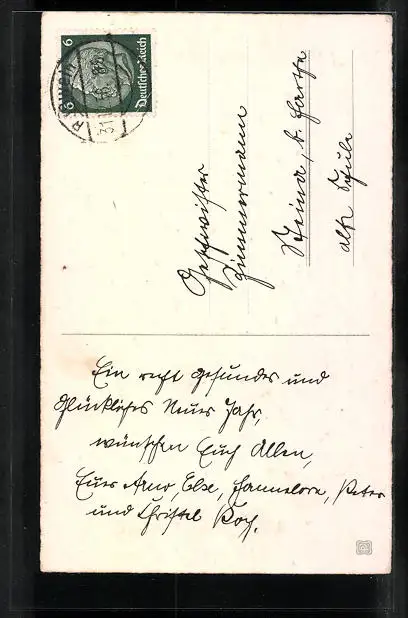 6 6
Deutsches Reich
31
Geschwister
Zimmermann
b.
alte Schule
Ein recht gesundes und
glückliches Neues Jahr,
wünschen Euch Allen,
Eure Arno, Else, Hannelore, Peter
und Christel Koch.